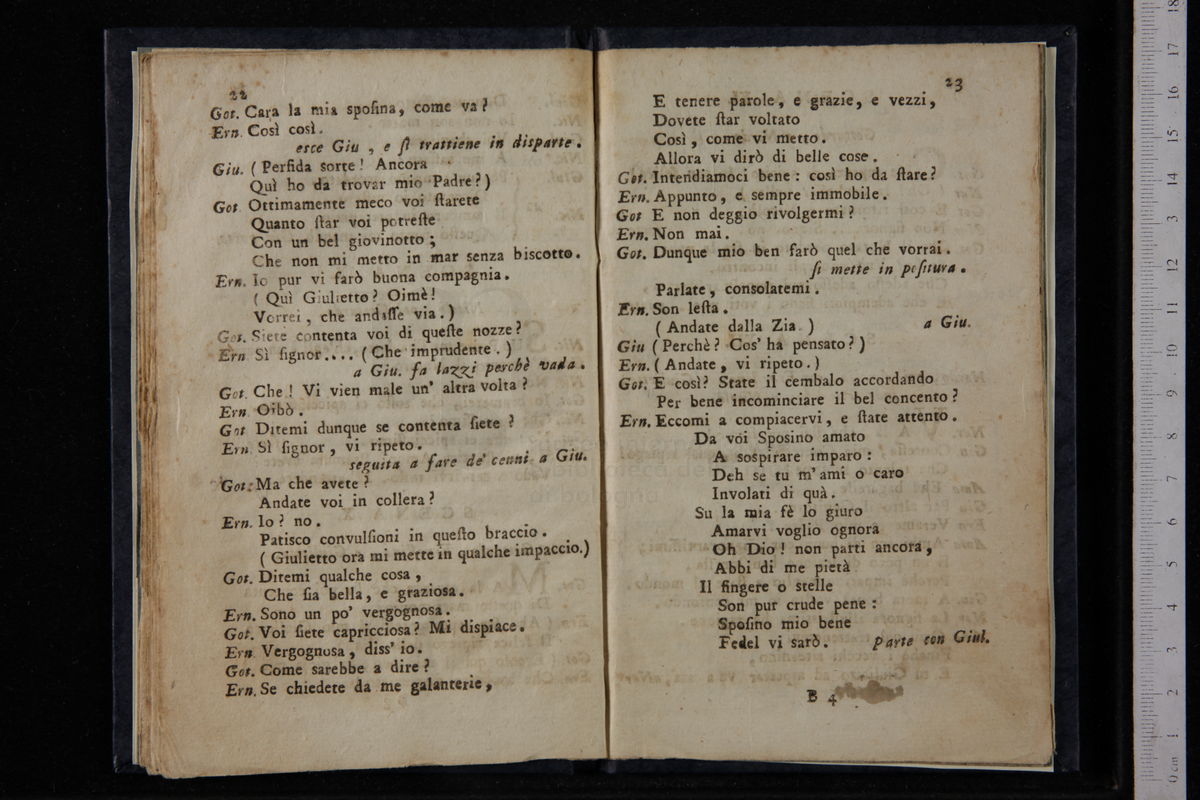 22
Got. Cara la mia sposina, come va?
Ern. Così così.
esce Giu , e ſi trattiene in disparte.
Giu. ( Perfida sorte! Ancora
Quì ho da trovar mio Padre?)
Got Ottimamente meco voi ſtarete
Quanto ſtar voi potreſte
Con un bel giovinotto;
Che non mi metto in mar senza biscotto.
Ern. Io pur vi farò buona compagnia.
( Quì Giulietto? Oimè!
Vorrei, che andaſſe via.)
Got. Siete contenta voi di queſte nozze?
Ern Sì ſignor.... (Che imprudente.)
a Giu. fa lazzi perchè vada.
Got. Che! Vi vien male un' altra volta?
Ern. Oibò.
Got Ditemi dunque se contenta ſiete?
Ern. Sì ſignor, vi ripeto.
seguita a fare de' cenni a Giu.
Got. Ma che avete?
Andate voi in collera?
Ern. Io? no.
Patisco convulſioni in queſto braccio.
( Giulietto ora mi mette in qualche impaccio.)
Got. Ditemi qualche cosa,
Che ſia bella, e graziosa.
Ern. Sono un po' vergognosa.
Got. Voi ſiete capricciosa? Mi dispiace.
Ern Vergognosa, diss' io.
Got. Come sarebbe a dire?
Ern. Se chiedete da me galanterie,
23
E tenere parole, e grazie, e vezzi,
Dovete ſtar voltato
Così, come vi metto.
Allora vi dirò di belle cose.
Got. Intendiamoci bene: così ho da ſtare?
Ern. Appunto, e sempre immobile.
Got E non deggio rivolgermi?
Ern. Non mai.
Got. Dunque mio ben farò quel che vorrai.
ſi mette in poſitura.
Parlate, consolatemi.
Ern. Son leſta.
( Andate dalla Zia ) a Giu.
Giu (Perchè? Cos' ha pensato?)
Ern. (Andate, vi ripeto.)
Got. E così? State il cembalo accordando
Per bene incominciare il bel concento?
Ern. Eccomi a compiacervi, e ſtate attento.
Da voi Sposino amato
A sospirare imparo:
Deh se tu m' ami o caro
Involati di quà.
Su la mia fè lo giuro
Amarvi voglio ognora
Oh Dio! non parti ancora,
Abbi di me pietà
Il fingere o stelle
Son pur crude pene:
Sposino mio bene
Fedel vi sarò. parte con Giul.
B 4